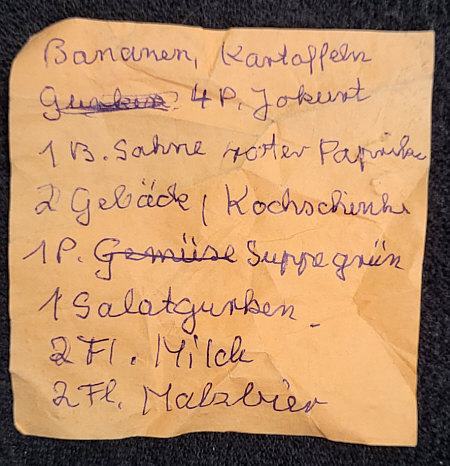 Bananen, Kartoffeln
Gurken 4 P. Jokurt
1 B. Sahne roter Paprika
2 Gebäck, Kochschinken
1 P. Gemüse Suppegrün
1 Salatgurken
2 Fl. Milch
2 Fl. Malzbier